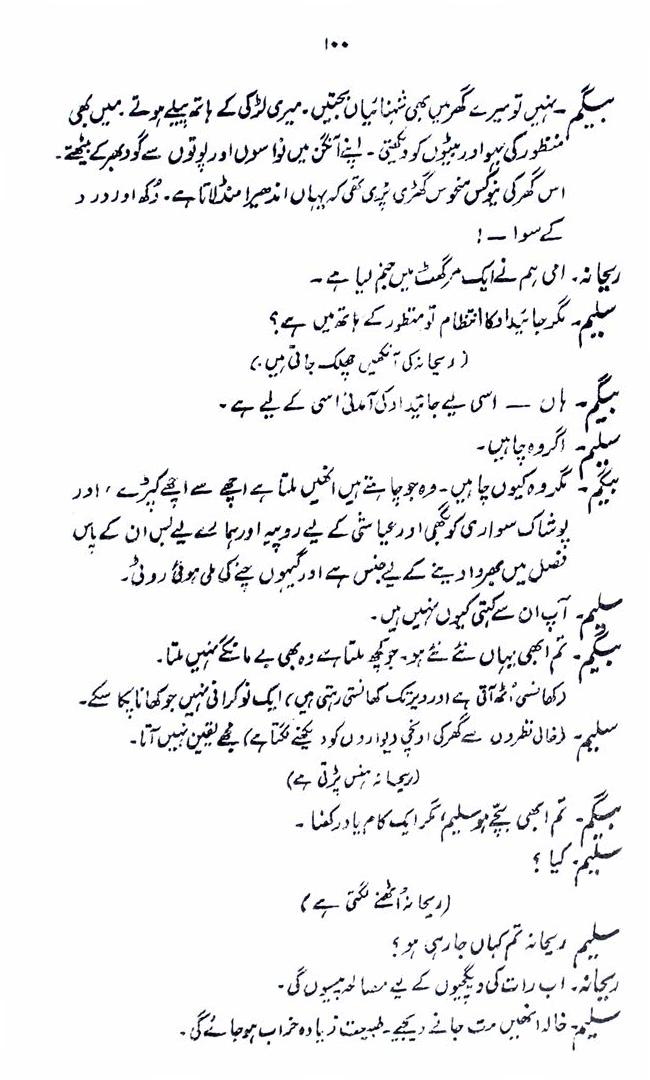 ۱۰۰
بیگم۔ نہیں تو میرے گھر میں بھی شہنائیاں بجتیں۔ میری لڑکی کے ہاتھ پیلے ہوتے۔ میں بھی
منظور کی بہو اور بیٹیوں کو دیکھتی۔ اپنے آنگن میں نواسوں اور پوتوں سے گود بھر کے بیٹھتے۔
اس گھر کی نیو کس منحوس گھڑی پڑی تھی کہ یہاں اندھیرا منڈلاتا ہے۔ دُکھ اور درد
کے سوا —!
ریحانہ۔ امی ہم نے ایک مرگھٹ میں جنم لیا ہے۔
سلیم۔ مگر جائیداد کا انتظام تو منظور کے ہاتھ میں ہے؟
(ریحانہ کی آنکھیں چھلک جاتی ہیں۔)
بیگم۔ ہاں — اسی لیے جائیداد کی آمدنی اسی کے لیے ہے۔
سلیم۔ اگر وہ چاہیں۔
بیگم۔ مگر وہ کیوں چاہیں۔ وہ جو چاہتے ہیں انھیں ملتا ہے اچھے سے اچھے کپڑے، اور
پوشاک سواری کو بگھی اور عیاشی کے لیے روپیہ اور ہمارے لیے بس ان کے پاس
فصل میں بھروا دینے کے لیے جنس ہے اور گیہوں چنے کی ملی ہوئی روٹی۔
سلیم۔ آپ ان سے کہتی کیوں نہیں ہیں۔
بیگم۔ تم ابھی یہاں نئے نئے ہو۔ جو کچھ ملتا ہے وہ بھی بے مانگے نہیں ملتا۔
(کھانسی اُٹھ آتی ہے اور دیر تک کھانستی رہتی ہیں) ایک نوکرانی نہیں جو کھانا پکا سکے۔
سلیم۔ (خالی نظروں سے گھر کی اونچی دیواروں کو دیکھنے لگتا ہے) مجھے یقین نہیں آتا۔
(ریحانہ ہنس پڑتی ہے)
بیگم۔ تم ابھی بچے ہو سلیم، مگر ایک کام یاد رکھنا۔
سلیم۔ کیا؟
(ریحانہ اُٹھنے لگتی ہے)
سلیم ریحانہ تم کہاں جا رہی ہو؟
ریحانہ۔ اب رات کی دیگچیوں کے لیے مسالہ پیسوں گی۔
سلیم۔ خالہ انھیں مت جانے دیجیے۔ طبیعت زیادہ خراب ہو جائے گی۔